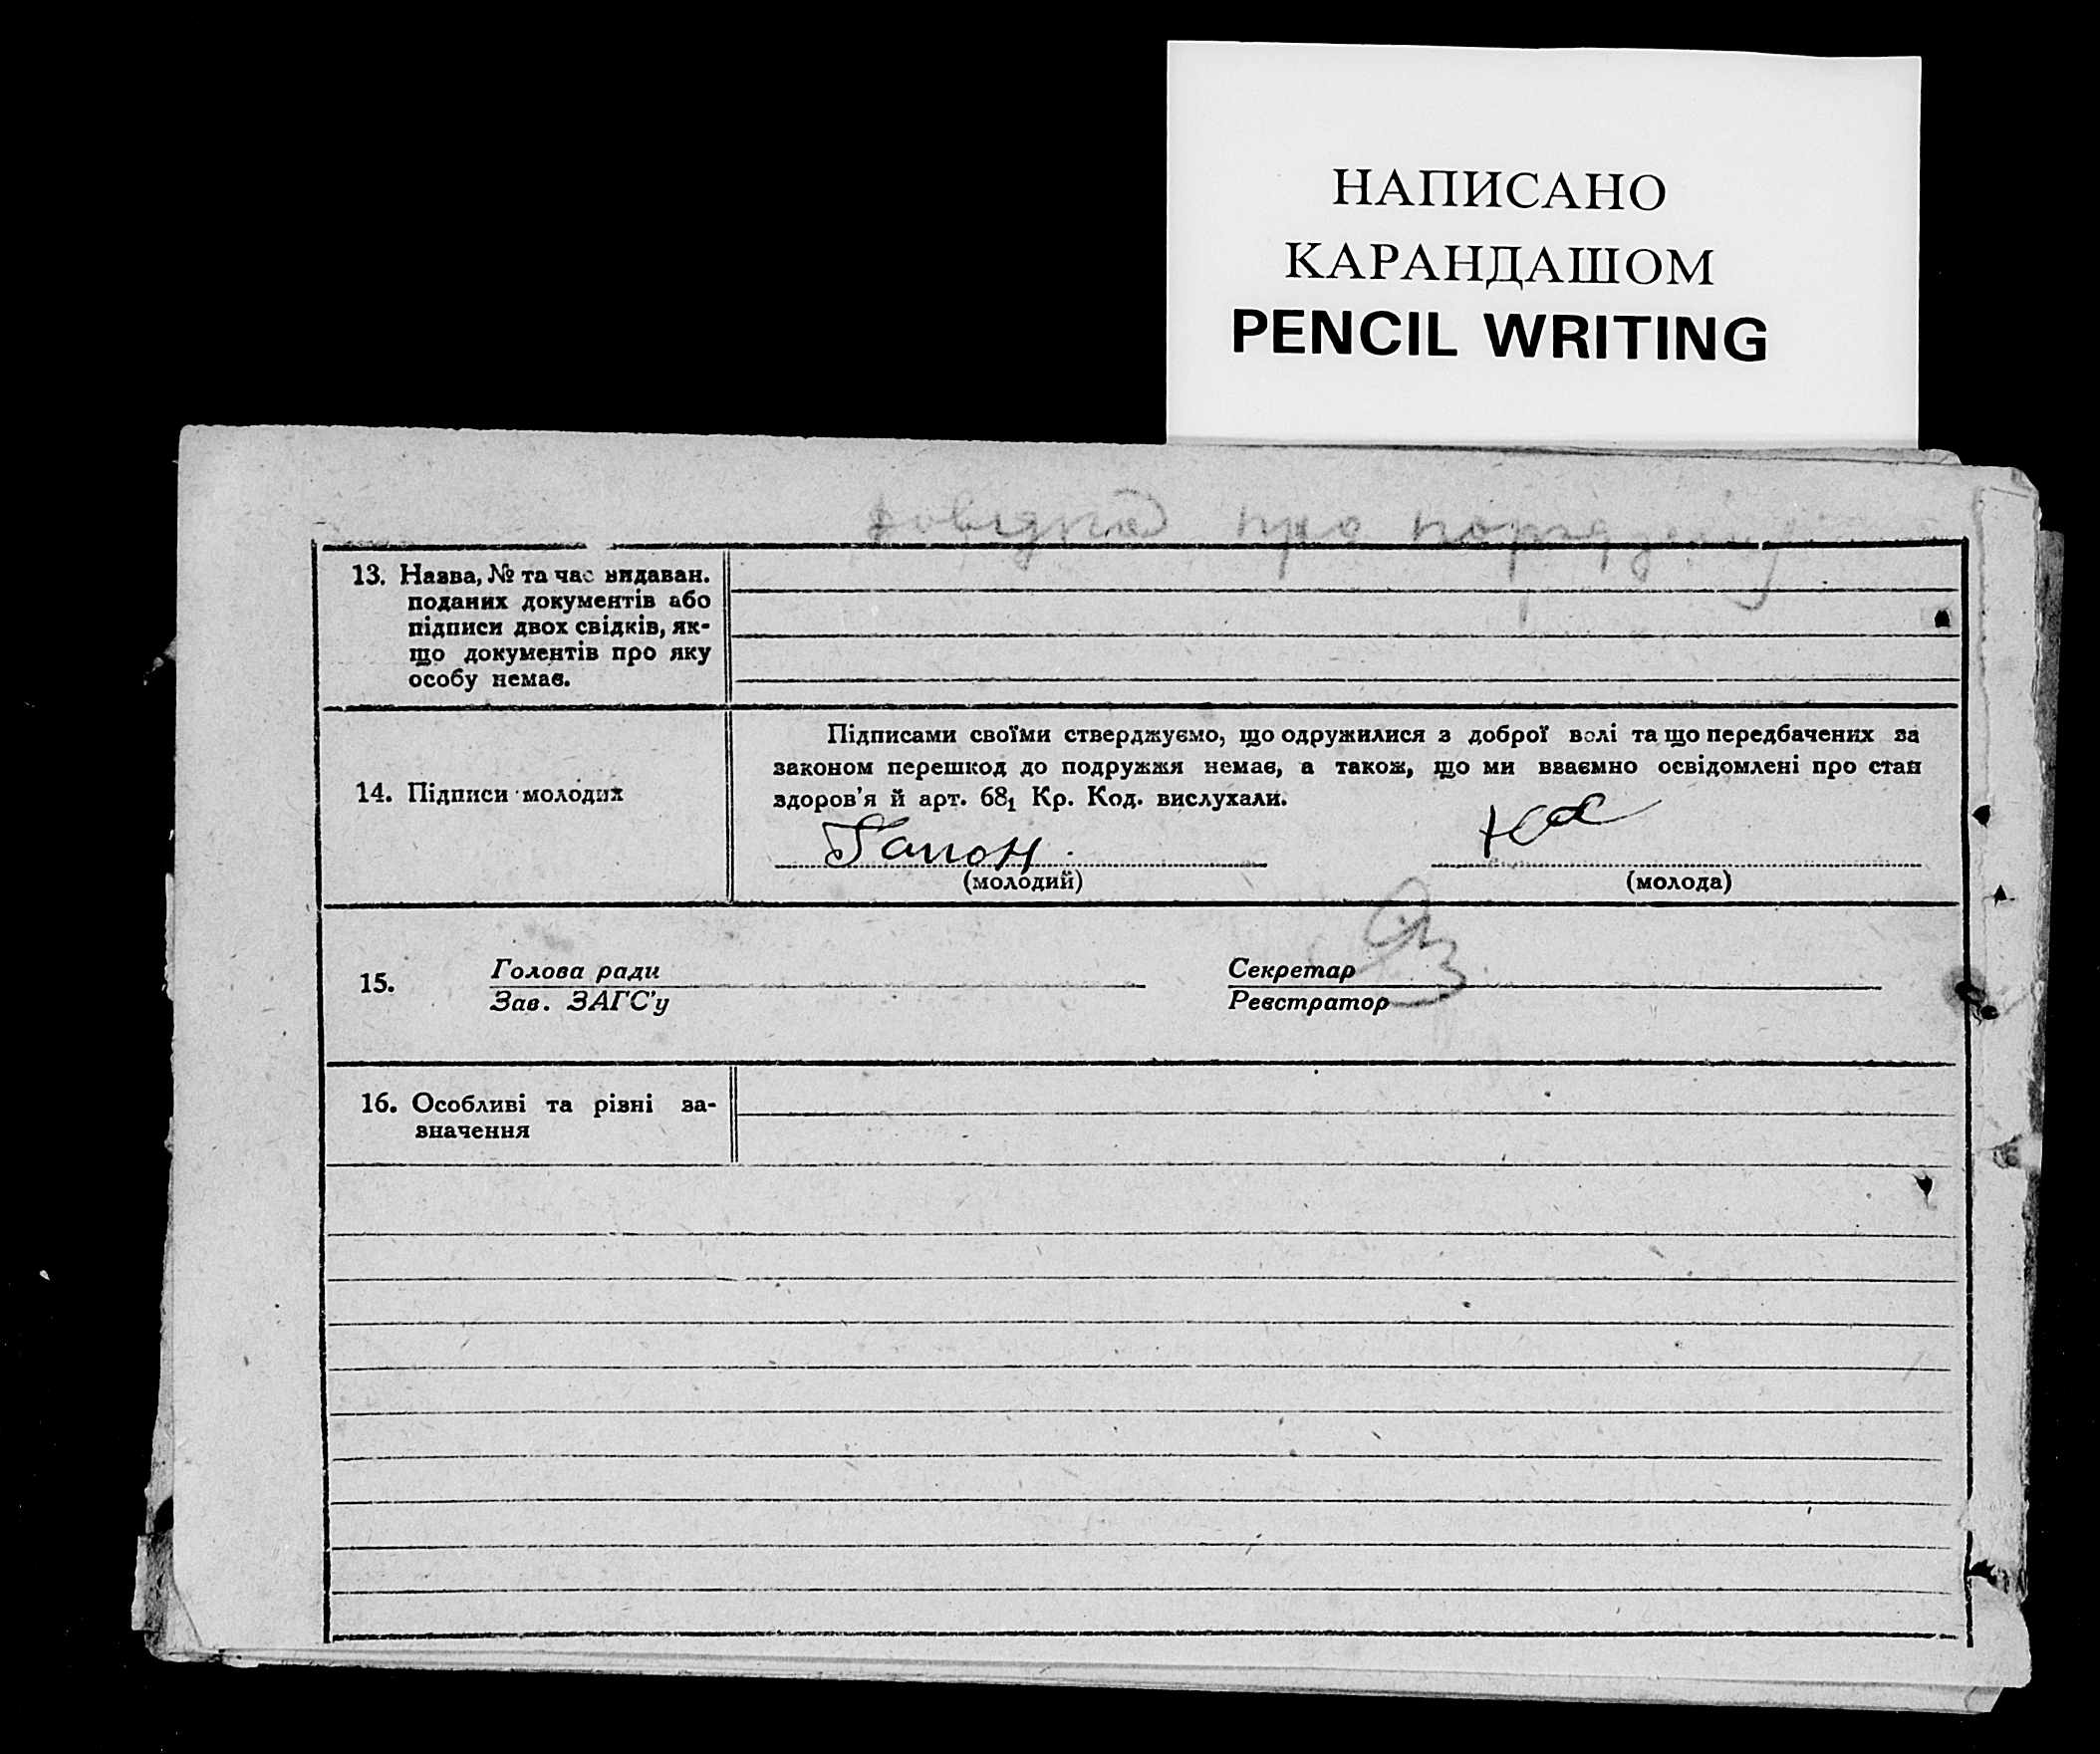 НАПИСАНО
КАРАНДАШОМ
PENCIL WRITING
довідка про
13. Назва, № та час видаван.
поданих документів або
підписи двох свідків, як-
що документів про яку
особу немає.
14. Підписи молодих
Підписами своїми стверджуємо, що одружилися з доброї волі та що передбачених за
законом перешкод до подружжя немає, а також, що ми взаємно освідомлені про стан
здоров’я й арт. 68₁ Кр. Код. вислухали.
Гапон
(молодий)
(молода)
15.
Голова ради
Зав. ЗАГС’у
Секретар
Реєстратор
16. Особливі та різні за-
значення